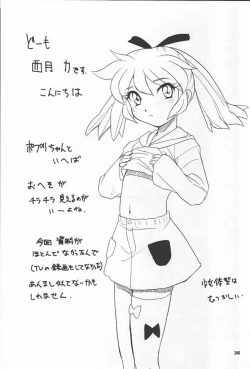 どーも
西月 力です。
こんにちは
ポプリちゃんと
いへば
おへそが
チラチラ見えるのが
いーよね。
今回 資料が
ほとんどなかったんで
(TUの録画もしてなかった)
あんまし似てないかも
しれません。
少女体型は
むつかしい
39